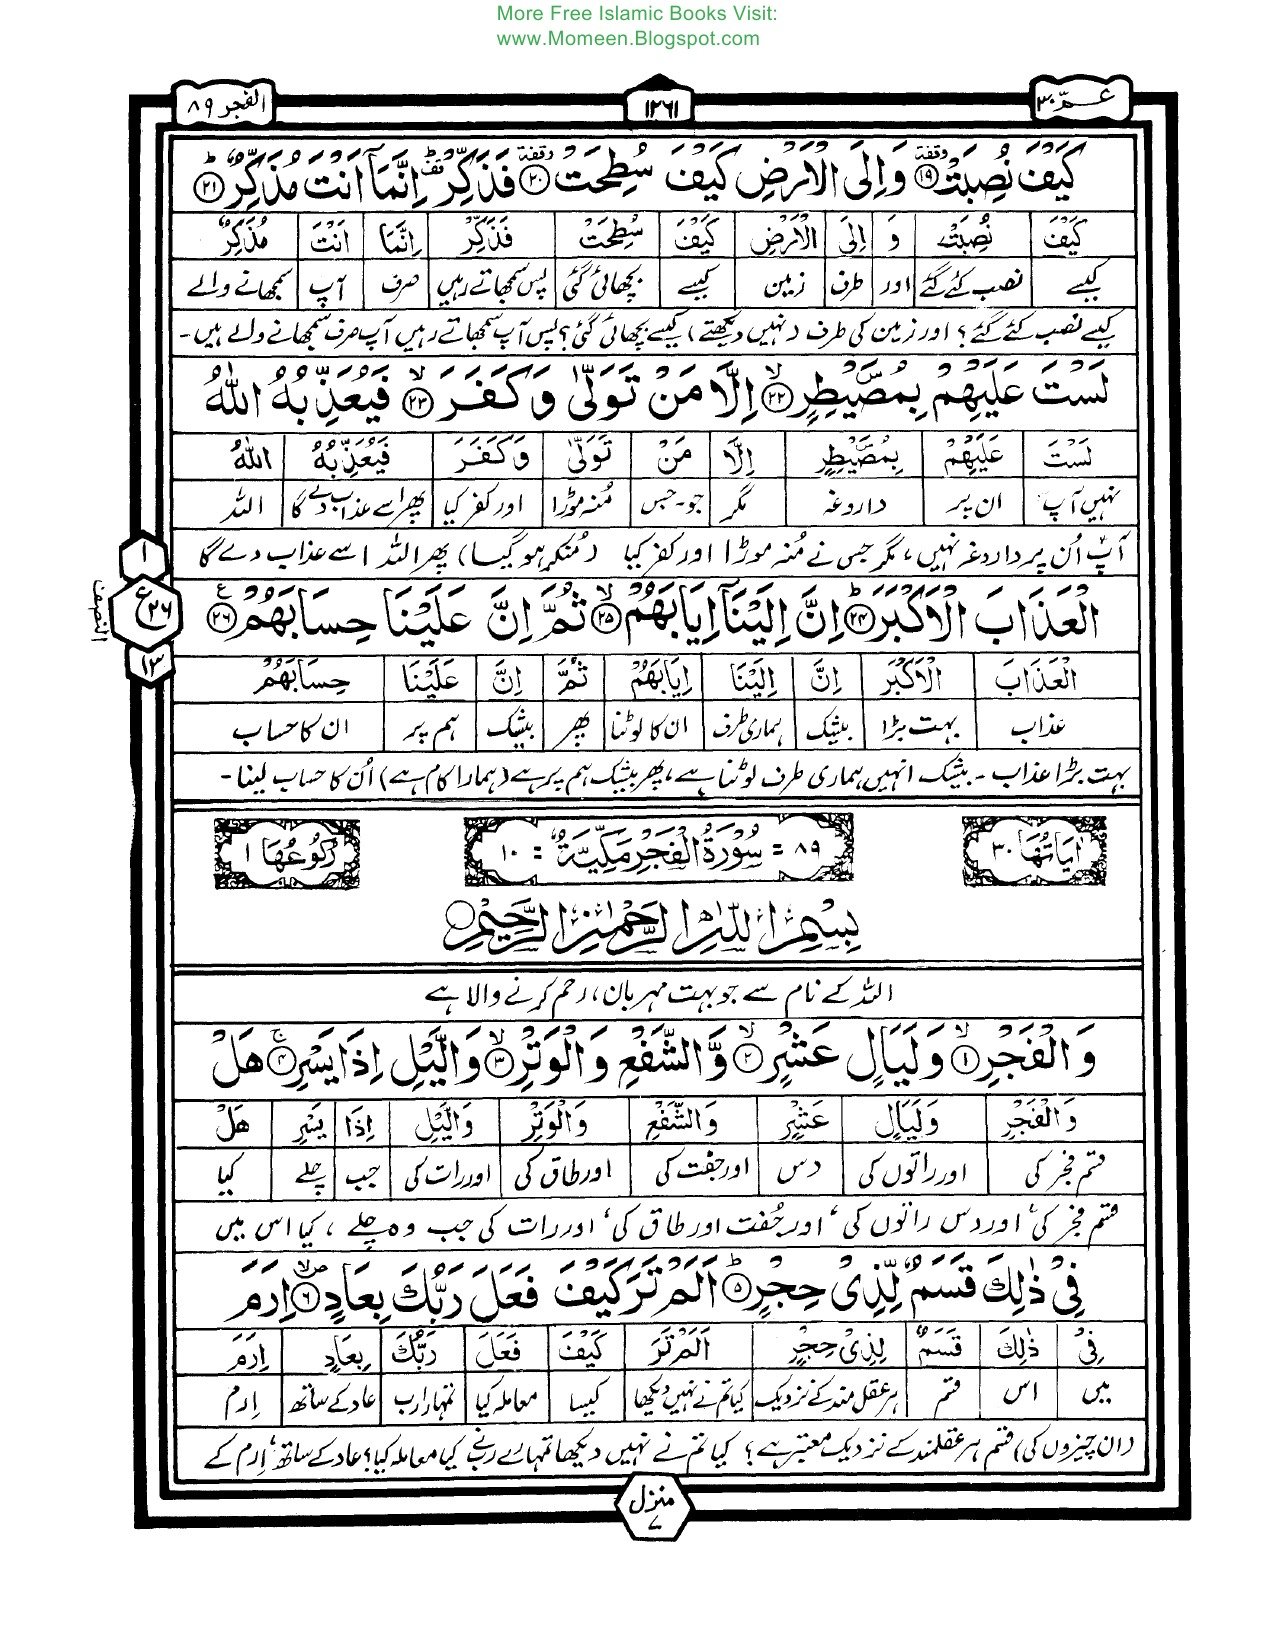 More Free Islamic Books Visit:
www.Momeen.Blogspot.com
عـــمّ ٣٠
١٢٦١
الفجر ٨٩
كَيْفَ نُصِبَتْ ۝١٩ وقفة وَاِلَى الْاَرْضِ كَيْفَ سُطِحَتْ ۝٢٠ وقفة فَذَكِّرْ قف اِنَّمَآ اَنْتَ مُذَكِّرٌ ۝٢١ ط
كَيْفَ نُصِبَتْ وَ اِلَى الْاَرْضِ كَيْفَ سُطِحَتْ فَذَكِّرْ اِنَّمَا اَنْتَ مُذَكِّرٌ
کیسے نصب کئے گئے اور طرف زمین کیسے بچھائی گئی پس سمجھاتے رہیں صرف آپ سمجھانے والے
کیسے نصب کئے گئے؟ اور زمین کی طرف (نہیں دیکھتے) کیسے بچھائی گئی؟ پس آپ سمجھاتے رہیں آپ صرف سمجھانے والے ہیں۔
لَسْتَ عَلَيْهِمْ بِمُصَۜيْطِرٍ ۝٢٢ لا اِلَّا مَنْ تَوَلّٰى وَكَفَرَ ۝٢٣ لا فَيُعَذِّبُهُ اللّٰهُ
لَسْتَ عَلَيْهِمْ بِمُصَۜيْطِرٍ اِلَّا مَنْ تَوَلّٰى وَكَفَرَ فَيُعَذِّبُهُ اللّٰهُ
نہیں آپ ان پر داروغہ مگر جو۔جس مُنہ موڑا اور کفر کیا پھر اسے عذاب دے گا اللہ
آپؐ اُن پر داروغہ نہیں، مگر جس نے مُنہ موڑا اور کفر کیا (مُنکر ہو گیا) پھر اللہ اسے عذاب دے گا
١
ع ٢٦
١٣
النصف
الْعَذَابَ الْاَكْبَرَ ۝٢٤ ط اِنَّ اِلَيْنَآ اِيَابَهُمْ ۝٢٥ لا ثُمَّ اِنَّ عَلَيْنَا حِسَابَهُمْ ۝٢٦ ع
الْعَذَابَ الْاَكْبَرَ اِنَّ اِلَيْنَا اِيَابَهُمْ ثُمَّ اِنَّ عَلَيْنَا حِسَابَهُمْ
عذاب بہت بڑا بیشک ہماری طرف ان کا لوٹنا پھر بیشک ہم پر ان کا حساب
بہت بڑا عذاب۔ بیشک انہیں ہماری طرف لوٹنا ہے، پھر بیشک ہم پر ہے (ہمارا کام ہے) اُن کا حساب لینا۔
اٰيَاتُهَا ٣٠
٨٩ = سُوْرَةُ الْفَجْرِ مَكِّيَّةٌ = ١٠
رُكُوْعُهَا ١
بِسْمِ اللّٰهِ الرَّحْمٰنِ الرَّحِيْمِ
اللہ کے نام سے جو بہت مہربان، رحم کرنے والا ہے
وَالْفَجْرِ ۝١ لا وَلَيَالٍ عَشْرٍ ۝٢ لا وَّالشَّفْعِ وَالْوَتْرِ ۝٣ لا وَالَّيْلِ اِذَا يَسْرِ ۝٤ ج هَلْ
وَالْفَجْرِ وَلَيَالٍ عَشْرٍ وَالشَّفْعِ وَالْوَتْرِ وَالَّيْلِ اِذَا يَسْرِ هَلْ
قسم فجر کی اور راتوں کی دس اور جفت کی اور طاق کی اور رات کی جب چلے کیا
قسم فجر کی، اور دس راتوں کی، اور جُفت اور طاق کی، اور رات کی جب وہ چلے، کیا اس میں
فِيْ ذٰلِكَ قَسَمٌ لِّذِيْ حِجْرٍ ۝٥ ط اَلَمْ تَرَ كَيْفَ فَعَلَ رَبُّكَ بِعَادٍ ۝٦ صلا اِرَمَ
فِيْ ذٰلِكَ قَسَمٌ لِذِيْ حِجْرٍ اَلَمْ تَرَ كَيْفَ فَعَلَ رَبُّكَ بِعَادٍ اِرَمَ
میں اس قسم ہر عقل مند کے نزدیک کیا تم نے نہیں دیکھا کیسا معاملہ کیا تمہارا رب عاد کے ساتھ اِرم
(ان چیزوں کی) قسم ہر عقلمند کے نزدیک معتبر ہے؟ کیا تم نے نہیں دیکھا تمہارے رب نے کیا معاملہ کیا؟ عاد کے ساتھ، اِرم کے
منزل
٧